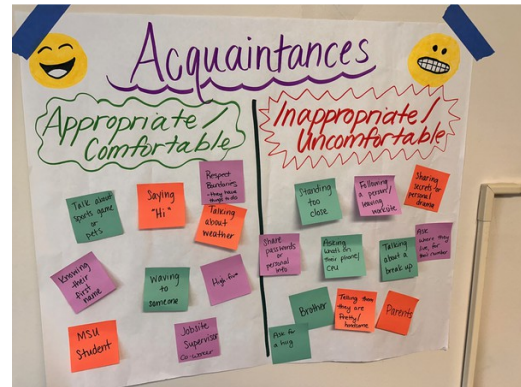 Acquaintances
Appropriate/
Comfortable
Talk about
sports game
or
pets
Saying
"Hi"
Respect
Boundaries
-they have
things to do
Talking
about
weather
Knowing
their
first
name
Waving
to
someone
High five
MSU
Student
Jobsite
Supervisor
Co-worker
Inappropriate/
Uncomfortable
Standing
too
close
Following
a person/
leaving
worksite
Sharing
secrets or
personal
drama
Share
passwords
or
personal
info
Asking
what's on
their phone/
Talking
about a
break up
Ask
where they
live, for
their number
Brother
Telling them
they are
Pretty/
handsome
Parents
Ask for
a hug